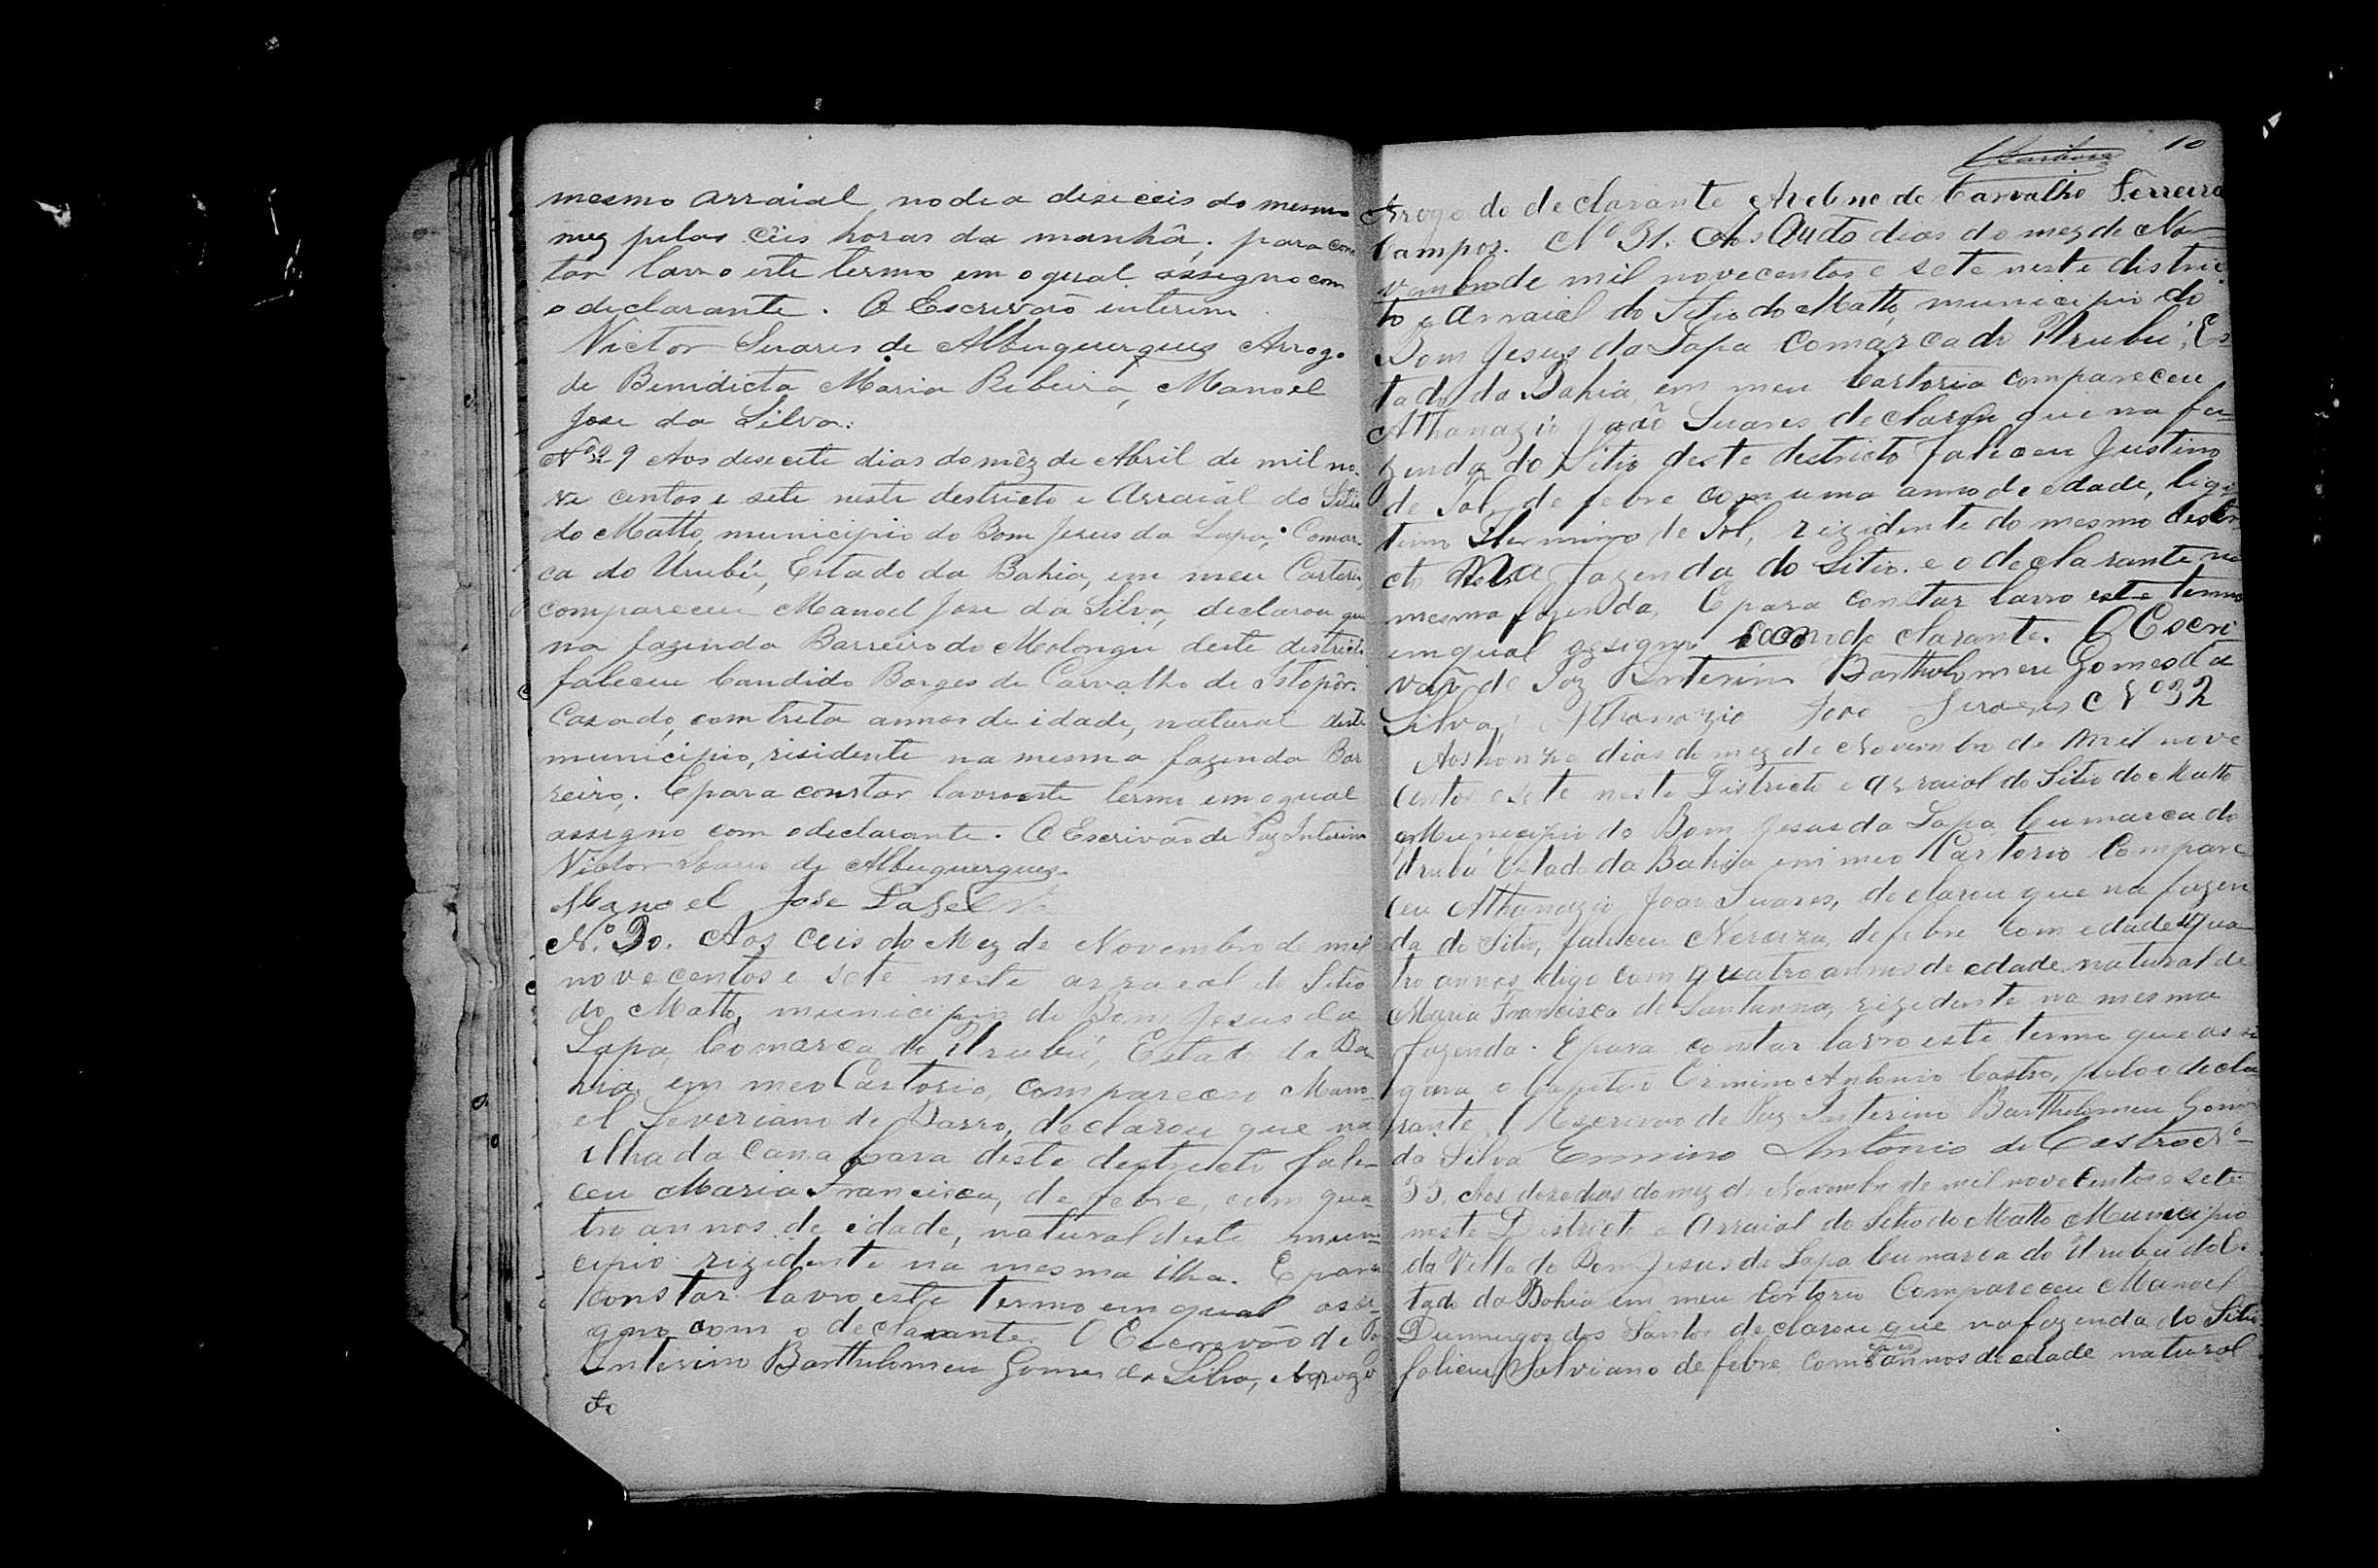 mesmo arraial no dia diseceis do mesmo
mez pelas ceis horas da manhã. para cons
tar lavro este termo em o qual assigno com
o declarante. O Escrivão interino
Victor Suares de Albuquerques Arrogo
de Benidicta Maria Ribeira, Manoel
Jose da Silva.
Nº 29 Aos desecete dias do mêz de Abril de mil no-
ve centos e sete neste destricto e Arraial do Sitio
do Matto, municipio do Bom Jesus da Lapa, Comar-
ca do Urubú, Estado da Bahia, em meu Cartorio,
compareceu Manoel Jose da Silva, declarou que
na fazenda Barreiro do Molongu deste destricto
faleceu Candido Borges de Carvalho de Istopôr.
Casado, com treta annos de idade, natural deste
municipio, risidente na mesma fazenda Bar
reiro. E para constar lavro este termo em o qual
assigno com o declarante. O Escrivão de Paz Interino
Victor Soares de Albuquerques.
Manoel Jose Da Silva
Nº 30. Aos ceis do Mez de Novembro de mil
novecentos e sete neste arraeal do Sitio
do Matto, municipio do Bom Jesus da
Lapa, Comarca do Urubú, Estado da Ba
hia, em meo Cartorio, compareceo Mano-
el Severiano de Barro, declarou que na
ilha da Canabrava deste destricto fale-
ceu Maria Francisca, de febre, com qua-
tro annos de idade, natural deste muni-
cipio rizidente na mesma ilha. E para
constar lavro este termo em qual assi-
gno com o declarante. O Escrevão de Paz
Interino Bartholomeu Gomes da Silva, Arrogo
do
10
Arrogo do declarante Avelino de Carvalho Ferreira
Campos. Nº 31. Aos Outo dias do mez de No-
vembro de mil novecentos e sete neste distric
to e Arraial do Sitio do Matto, municipio do
Bom Jesus da Lapa Comarca do Urubú, Es
tado da Bahia, em meu Cartorio compareceu
Athanazio João Suares declarou que na fa-
zenda do Sitio deste destricto faleceu Justino
de Sol, de febre com uma anno de edade, ligi
timo Hermino de Sol, rizidente do mesmo destri
cto na fazenda do Sitio. e o declarante na
mesma fazenda. E para constar lavro este termo
em qual assigno com declarante. O Escri
vão de Paz Interino Bartholomeu Gomes da
Silva, Athanazio João Suares Nº 32
Aos honze dias do mez de Novembro de Mil nove
centos e sete neste Districto e arraial do Sitio do Matto
Municipio do Bom Jesus da Lapa Cumarca do
Urubú Estado da Bahia em meo Cartorio Compare
ceu Athanazio João Suares, declarou que na fazen
da do Sitio, faleceu Narciza, de febre com edade qua
tro annos, digo com quatro annos de edade natural de
Maria Francisca de Santanna, rizidente na mesma
fazenda. E para constar lavro este termo que as si
gna o Capitão Ermino Antonio Castro, pelo o decla
rante. O Escrivão de Paz Interino Bartholomeu Gomes
da Silva Ermino Antonio de Castro Nº
33. Aos doze dias do mez de Novembro de mil novecentos e sete
neste Districto e Arraial do Sitio do Matto Municipio
da Villa do Bom Jesus da Lapa Cumarca do Urubú do Es
tado da Bahia em meu Cartorio Compareceu Manoel
Dumingos dos Santos declarou que na fazenda do Sitio
faliceu Salviano de febre com annos de edade natural